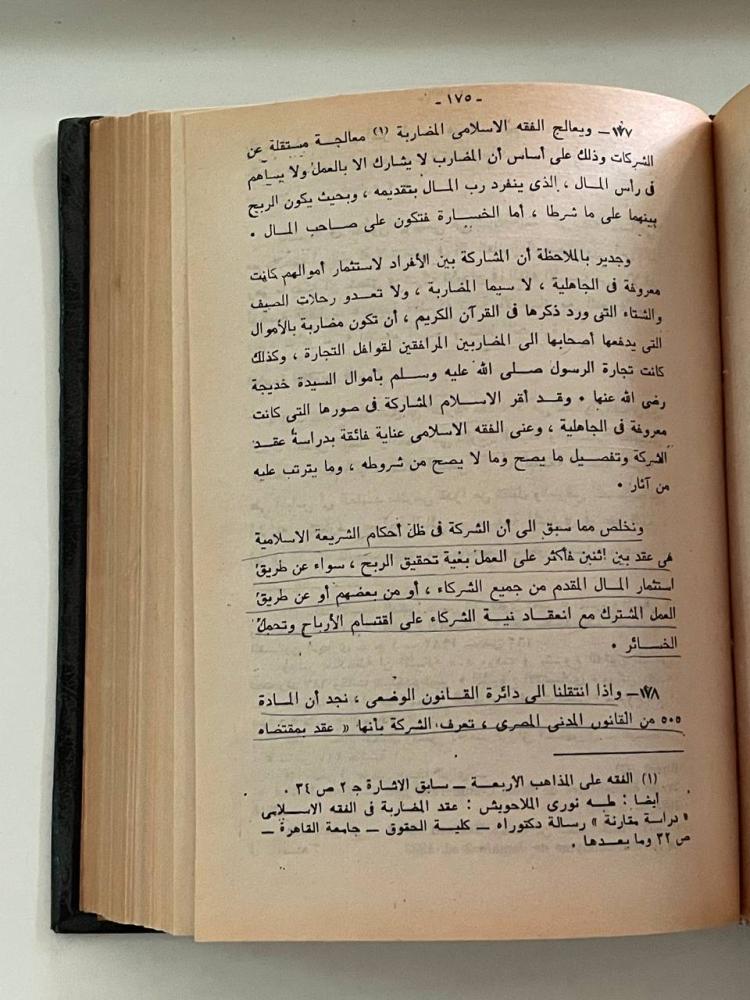 - ١٧٥ -
١٧٧ـ ويعالج الفقه الاسلامى المضاربة (١) معالجة مستقلة عن
الشركات وذلك على أساس أن المضارب لا يشارك الا بالعمل ولا يساهم
فى رأس المال ، الذى ينفرد رب المال بتقديمه ، وبحيث يكون الربح
بينهما على ما شرطا ، أما الخسارة فتكون على صاحب المال .
وجدير بالملاحظة أن المشاركة بين الأفراد لاستثمار أموالهم كانت
معروفة فى الجاهلية ، لا سيما المضاربة ، ولا تعدو رحلات الصيف
والشتاء التى ورد ذكرها فى القرآن الكريم ، أن تكون مضاربة بالأموال
التى يدفعها أصحابها الى المضاربين المرافقين لقوافل التجارة ، وكذلك
كانت تجارة الرسول صلى الله عليه وسلم بأموال السيدة خديجة
رضى الله عنها . وقد أقر الاسلام المشاركة فى صورها التى كانت
معروفة فى الجاهلية ، وعنى الفقه الاسلامى عناية فائقة بدراسة عقد
الشركة وتفصيل ما يصح وما لا يصح من شروطه ، وما يترتب عليه
من آثار .
ونخلص مما سبق الى أن الشركة فى ظل أحكام الشريعة الاسلامية
هى عقد بين اثنين فأكثر على العمل بغية تحقيق الربح ، سواء عن طريق
استثمار المال المقدم من جميع الشركاء ، أو من بعضهم أو عن طريق
العمل المشترك مع انعقاد نية الشركاء على اقتسام الأرباح وتحمل
الخسائر .
١٧٨ـ واذا انتقلنا الى دائرة القانون الوضعى ، نجد أن المادة
٥٠٥ من القانون المدنى المصرى ، تعرف الشركة بأنها « عقد بمقتضاه
(١) الفقه على المذاهب الأربعة ــ سابق الاشارة ج ٢ ص ٣٤ .
أيضا : طه نورى الملاحويش : عقد المضاربة فى الفقه الاسلامى
« دراسة مقارنة » رسالة دكتوراه ــ كلية الحقوق ــ جامعة القاهرة ــ
ص ٣٢ وما بعدها .